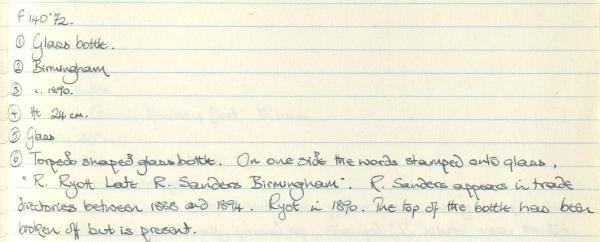 F 140'72.
① Glass bottle.
② Birmingham
③ c. 1890.
④ Ht 24 cm.
⑤ Glass
⑥ Torpedo shaped glass bottle. On one side the words stamped onto glass,
"R. Ryott Late R. Sanders Birmingham". R. Sanders appears in trade
directories between 1888 and 1894. Ryot in 1890. The top of the bottle has been
broken off but is present.